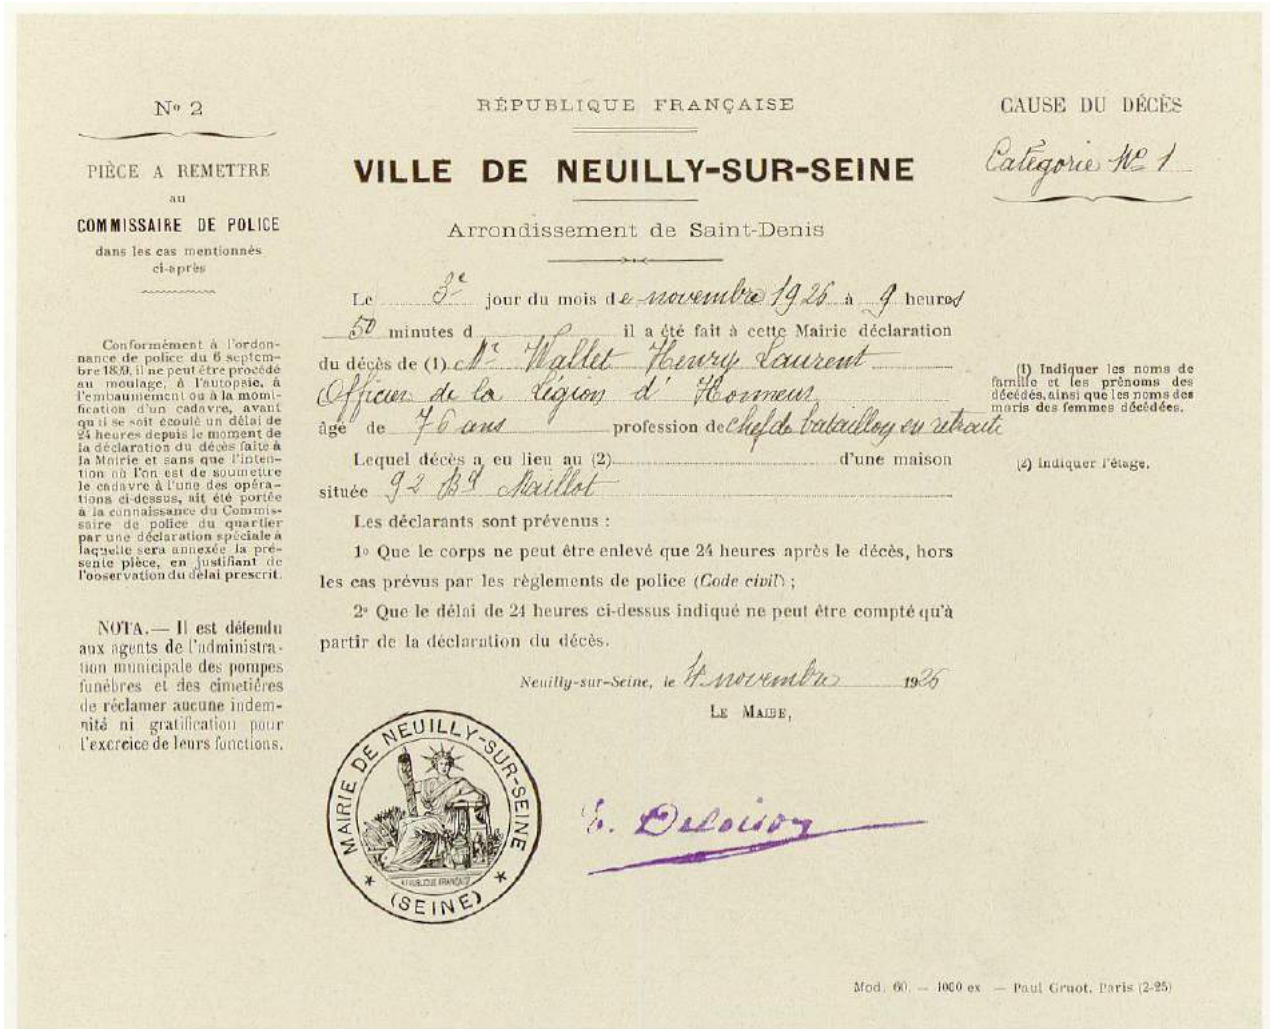 No 2
PIÈCE A REMETTRE
au
COMMISSAIRE DE POLICE
dans les cas mentionnés
ci-après
Conformément à l'ordon-
nance de police du 6 septem-
bre 1839, il ne peut être procédé
au moulage, à l'autopsie, à
l'embaumement ou à la momi-
fication d'un cadavre, avant
qu'il se soit écoulé un délai de
24 heures depuis le moment de
la déclaration du décès faite à
la Mairie et sans que l'inten-
tion où l'on est de soumettre
le cadavre à l'une des opéra-
tions ci-dessus, ait été portée
à la connaissance du Commis-
saire de police du quartier
par une déclaration spéciale à
laquelle sera annexée la pré-
sente pièce, en justifiant de
l'observation du délai prescrit.
NOTA.— Il est défendu
aux agents de l'administra-
tion municipale des pompes
funèbres et des cimetières
de réclamer aucune indem-
nité ni gratification pour
l'exercice de leurs functions.
RÉPUBLIQUE FRANÇAISE
VILLE DE NEUILLY-SUR-SEINE
Arrondissement de Saint-Denis
Le 3e jour du mois de novembre 1926 à 9 heures
50 minutes d il a été fait à cette Mairie déclaration
du décès de (1) Mr Wallet Henry Laurent
Officier de la Légion d'Honneur
âgé de 76 ans profession de chef de bataillon en retraite
Lequel décès a eu lieu au (2) d'une maison
située 92 Bd Maillot
Les déclarants sont prévenus :
1o Que le corps ne peut être enlevé que 24 heures après le décès, hors
les cas prévus par les règlements de police (Code civil) ;
2o Que le délai de 24 heures ci-dessus indiqué ne peut être compté qu'à
partir de la déclaration du décès.
Neuilly-sur-Seine, le 4 novembre 1926
LE MAIRE,
MAIRIE DE NEUILLY-SUR-SEINE
RÉPUBLIQUE FRANÇAISE
(SEINE)
E. Deloison
CAUSE DU DÉCÈS
Catégorie No 1
(1) Indiquer les noms de
famille et les prénoms des
décédés, ainsi que les noms des
maris des femmes décédées.
(2) Indiquer l'étage.
Mod. 60. — 1000 ex — Paul Gruot. Paris (2-25)